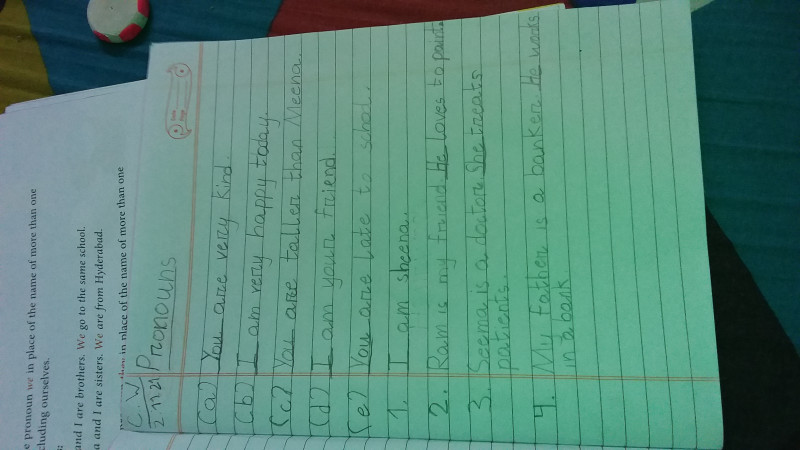 e pronoun we in place of the name of more than one
cluding ourselves.
and I are brothers. We go to the same school.
a and I are sisters. We are from Hyderabad.
in place of the name of more than one
C.W
2 11 21
Pronouns
(a) You are very kind.
(b) I am very happy today
(c) You are taller than Meena.
(d) I am your friend.
(e) You are late to shool.
1. I am sheena.
2. Ram is my friend He loves to paint.
3. Seema is a doctor. She treats
patients.
4. My father is a banker He works
in a bank.